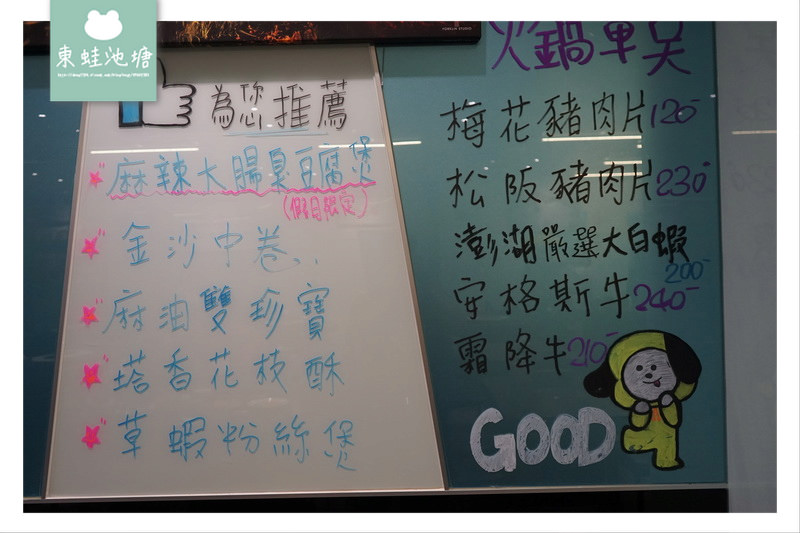 東蛙池塘
為您推薦
麻辣大腸臭豆腐煲
(假日限定)
金沙中卷..
麻油雙珍寶
塔香花枝酥
草蝦粉絲煲
火鍋單点
梅花豬肉片120-
松阪豬肉片230-
澎湖嚴選大白蝦
200-
安格斯牛240-
霜降牛210-
GOOD